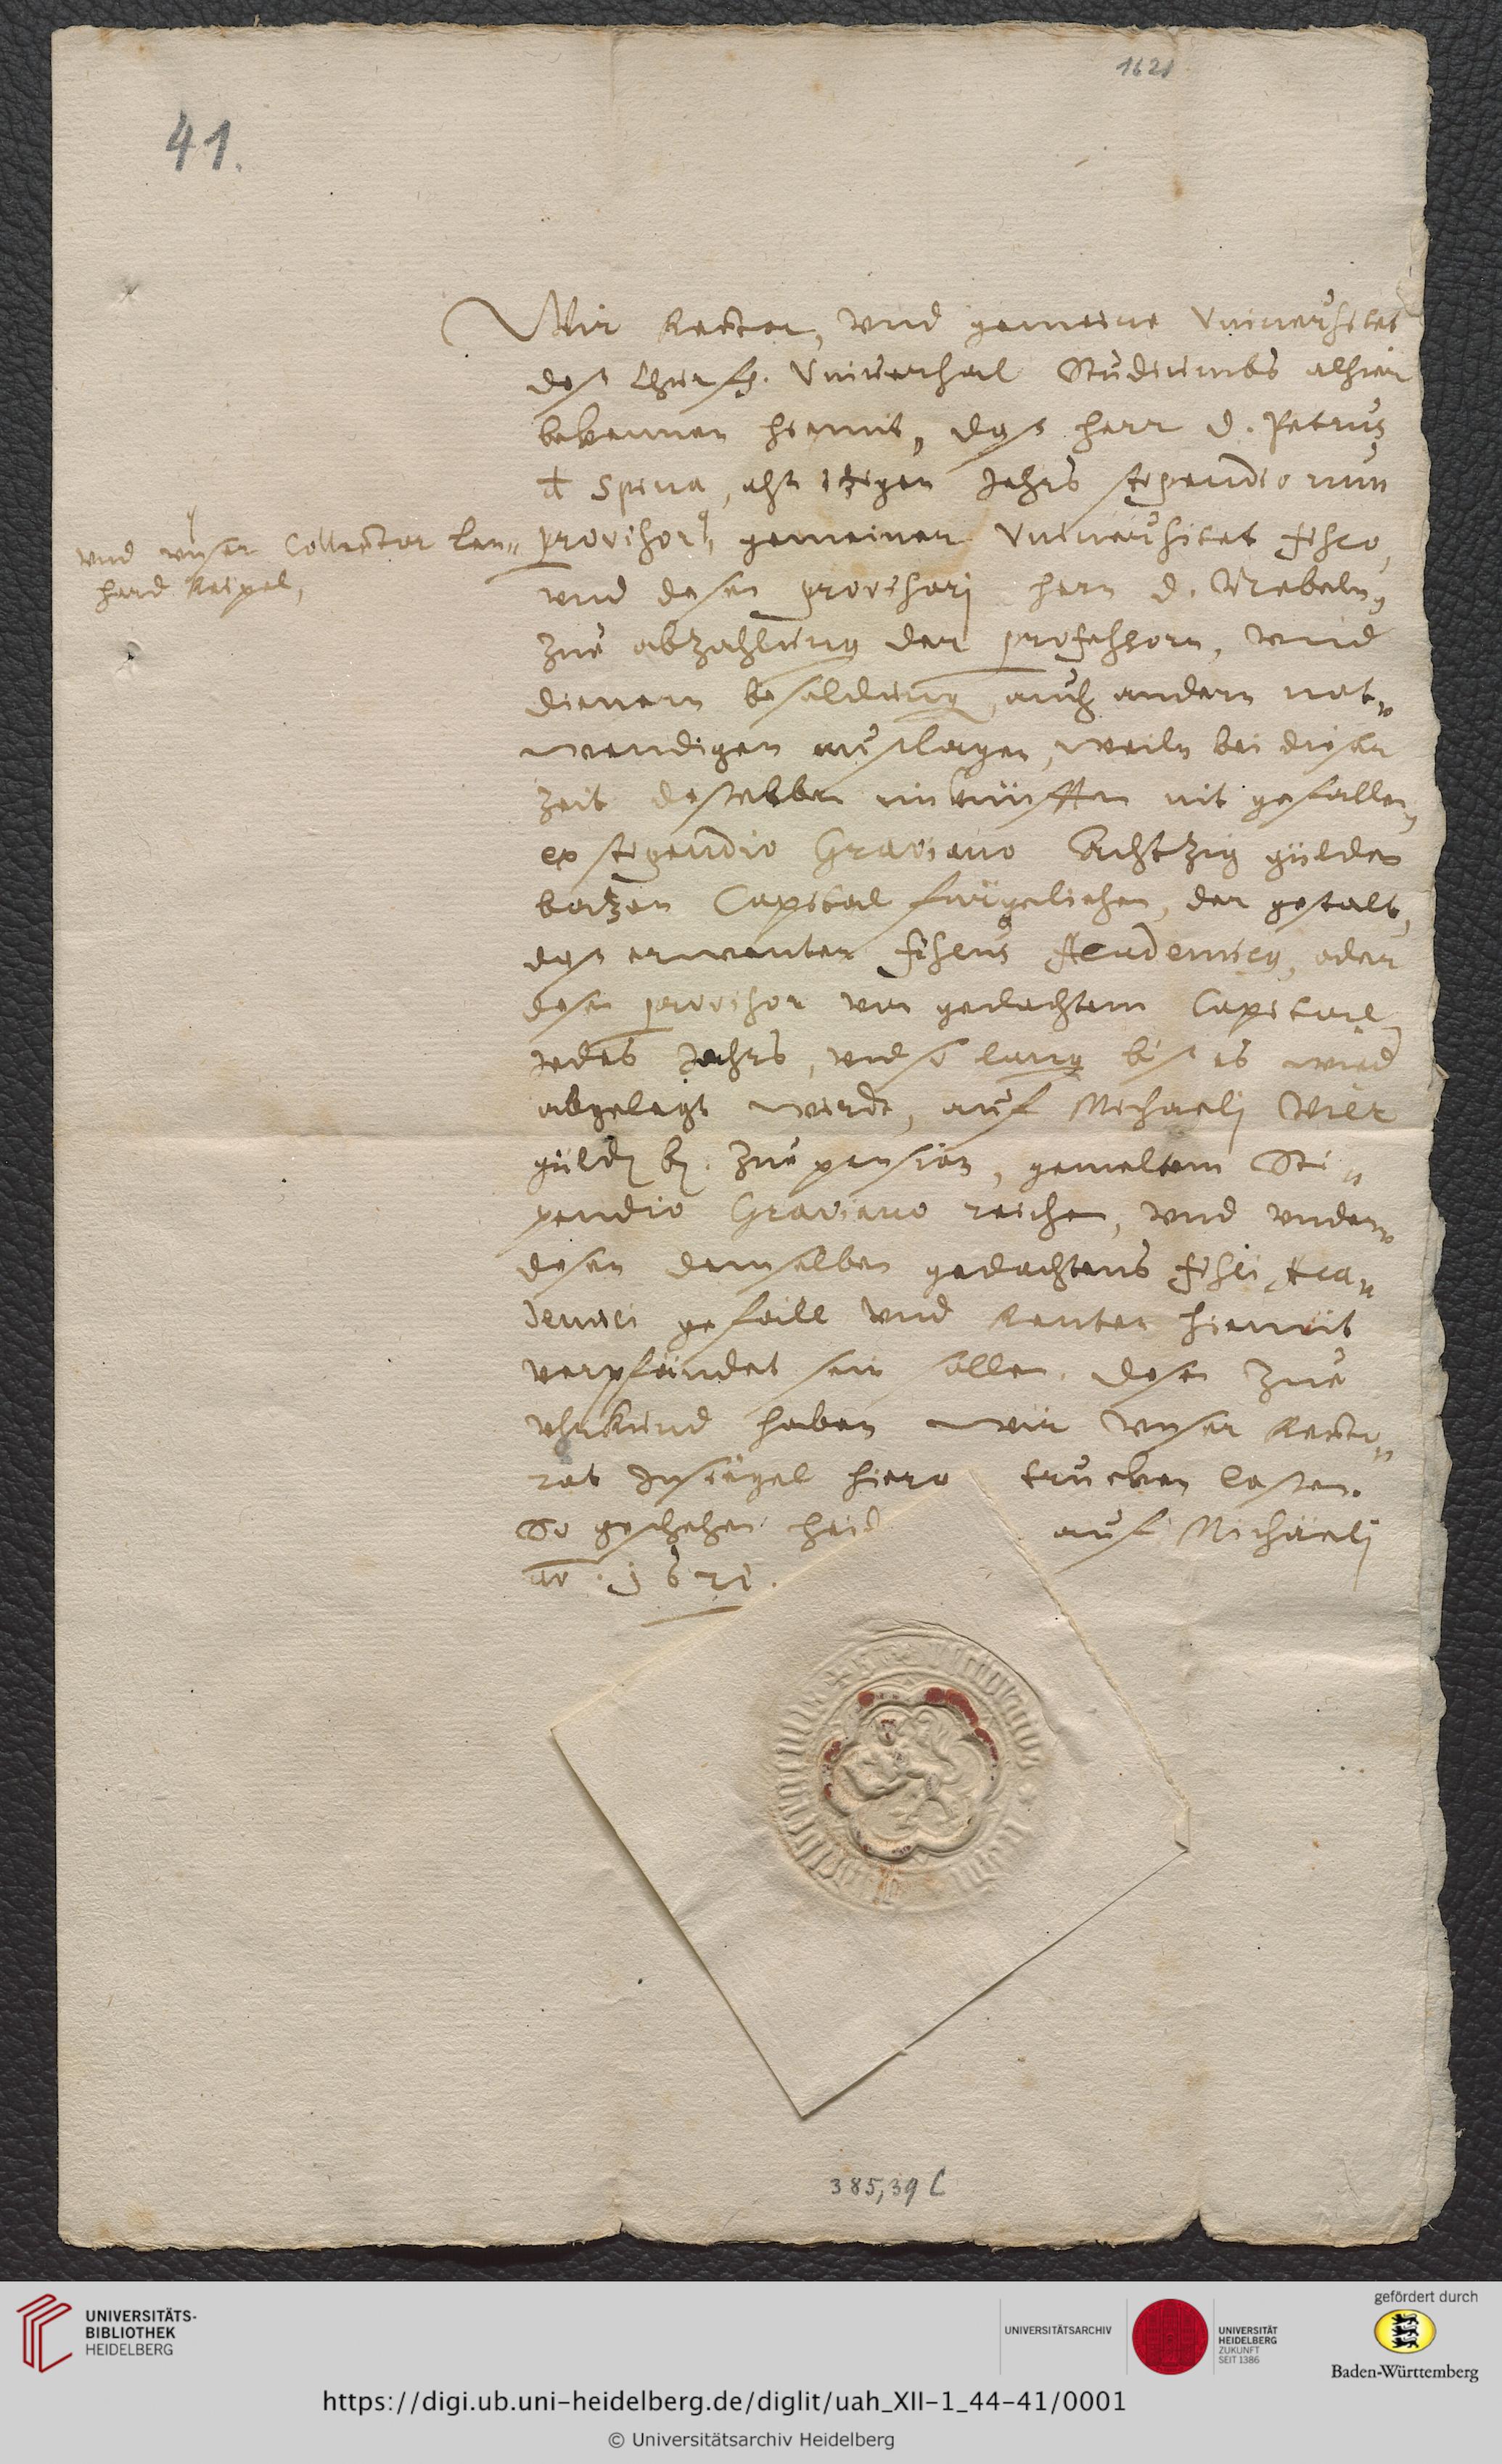 1621
41.
Wir Rector, vnd gemeine Vniuersitet
des Churf. Vniuersal Studiumbs alhier
bekennen hiemit, das herr D. Petrus
à Spina, als itzigen Jahrs stipendiorum
provisor, gemeiner Vniuersitet fisco,
vnd vnser Collector Len„
hard Keipel,
vnd desen provisori hern D.
zue abzahlung der professorn, vnd
dienern besoldung, auch andern not„
wendigen auslagen, weiln bei dieser
zeit desselben einkünfften nit gefallen,
ex stipendio Graviano Achtzig gülden
batzen Capital fürgeliehen, der gestalt,
das ermelter fiscus Academicus, oder
desen provisor von gedachtem Capital
jedes Jahrs, vnd so lang bis es wird
abgelegt werde, auf Michaelj Vier
güld. b. zue pension, gemeltem Sti„
pendio Graviano reichen, vnd vnder„
desen demselben gedachtens fisci Aca„
demici gefäll vnd Renten hiemit
verpfändet sein sollen. desen zue
vhrkund haben wir vnser Recto„
rat Insiegel hiera trucken lassen.
So geschehen heid auf Michaelj
ao. 1621.
385,39 C
UNIVERSITÄTS-
BIBLIOTHEK
HEIDELBERG
UNIVERSITÄTSARCHIV
UNIVERSITÄT
HEIDELBERG
ZUKUNFT
SEIT 1386
gefördert durch
Baden-Württemberg
https://digi.ub.uni-heidelberg.de/diglit/uah_XII-1_44-41/0001
© Universitätsarchiv Heidelberg